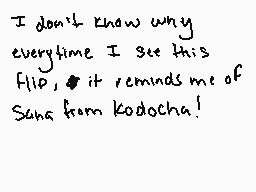 I don't know why
everytime I see this
flip, it reminds me of
Sana from Kodocha!